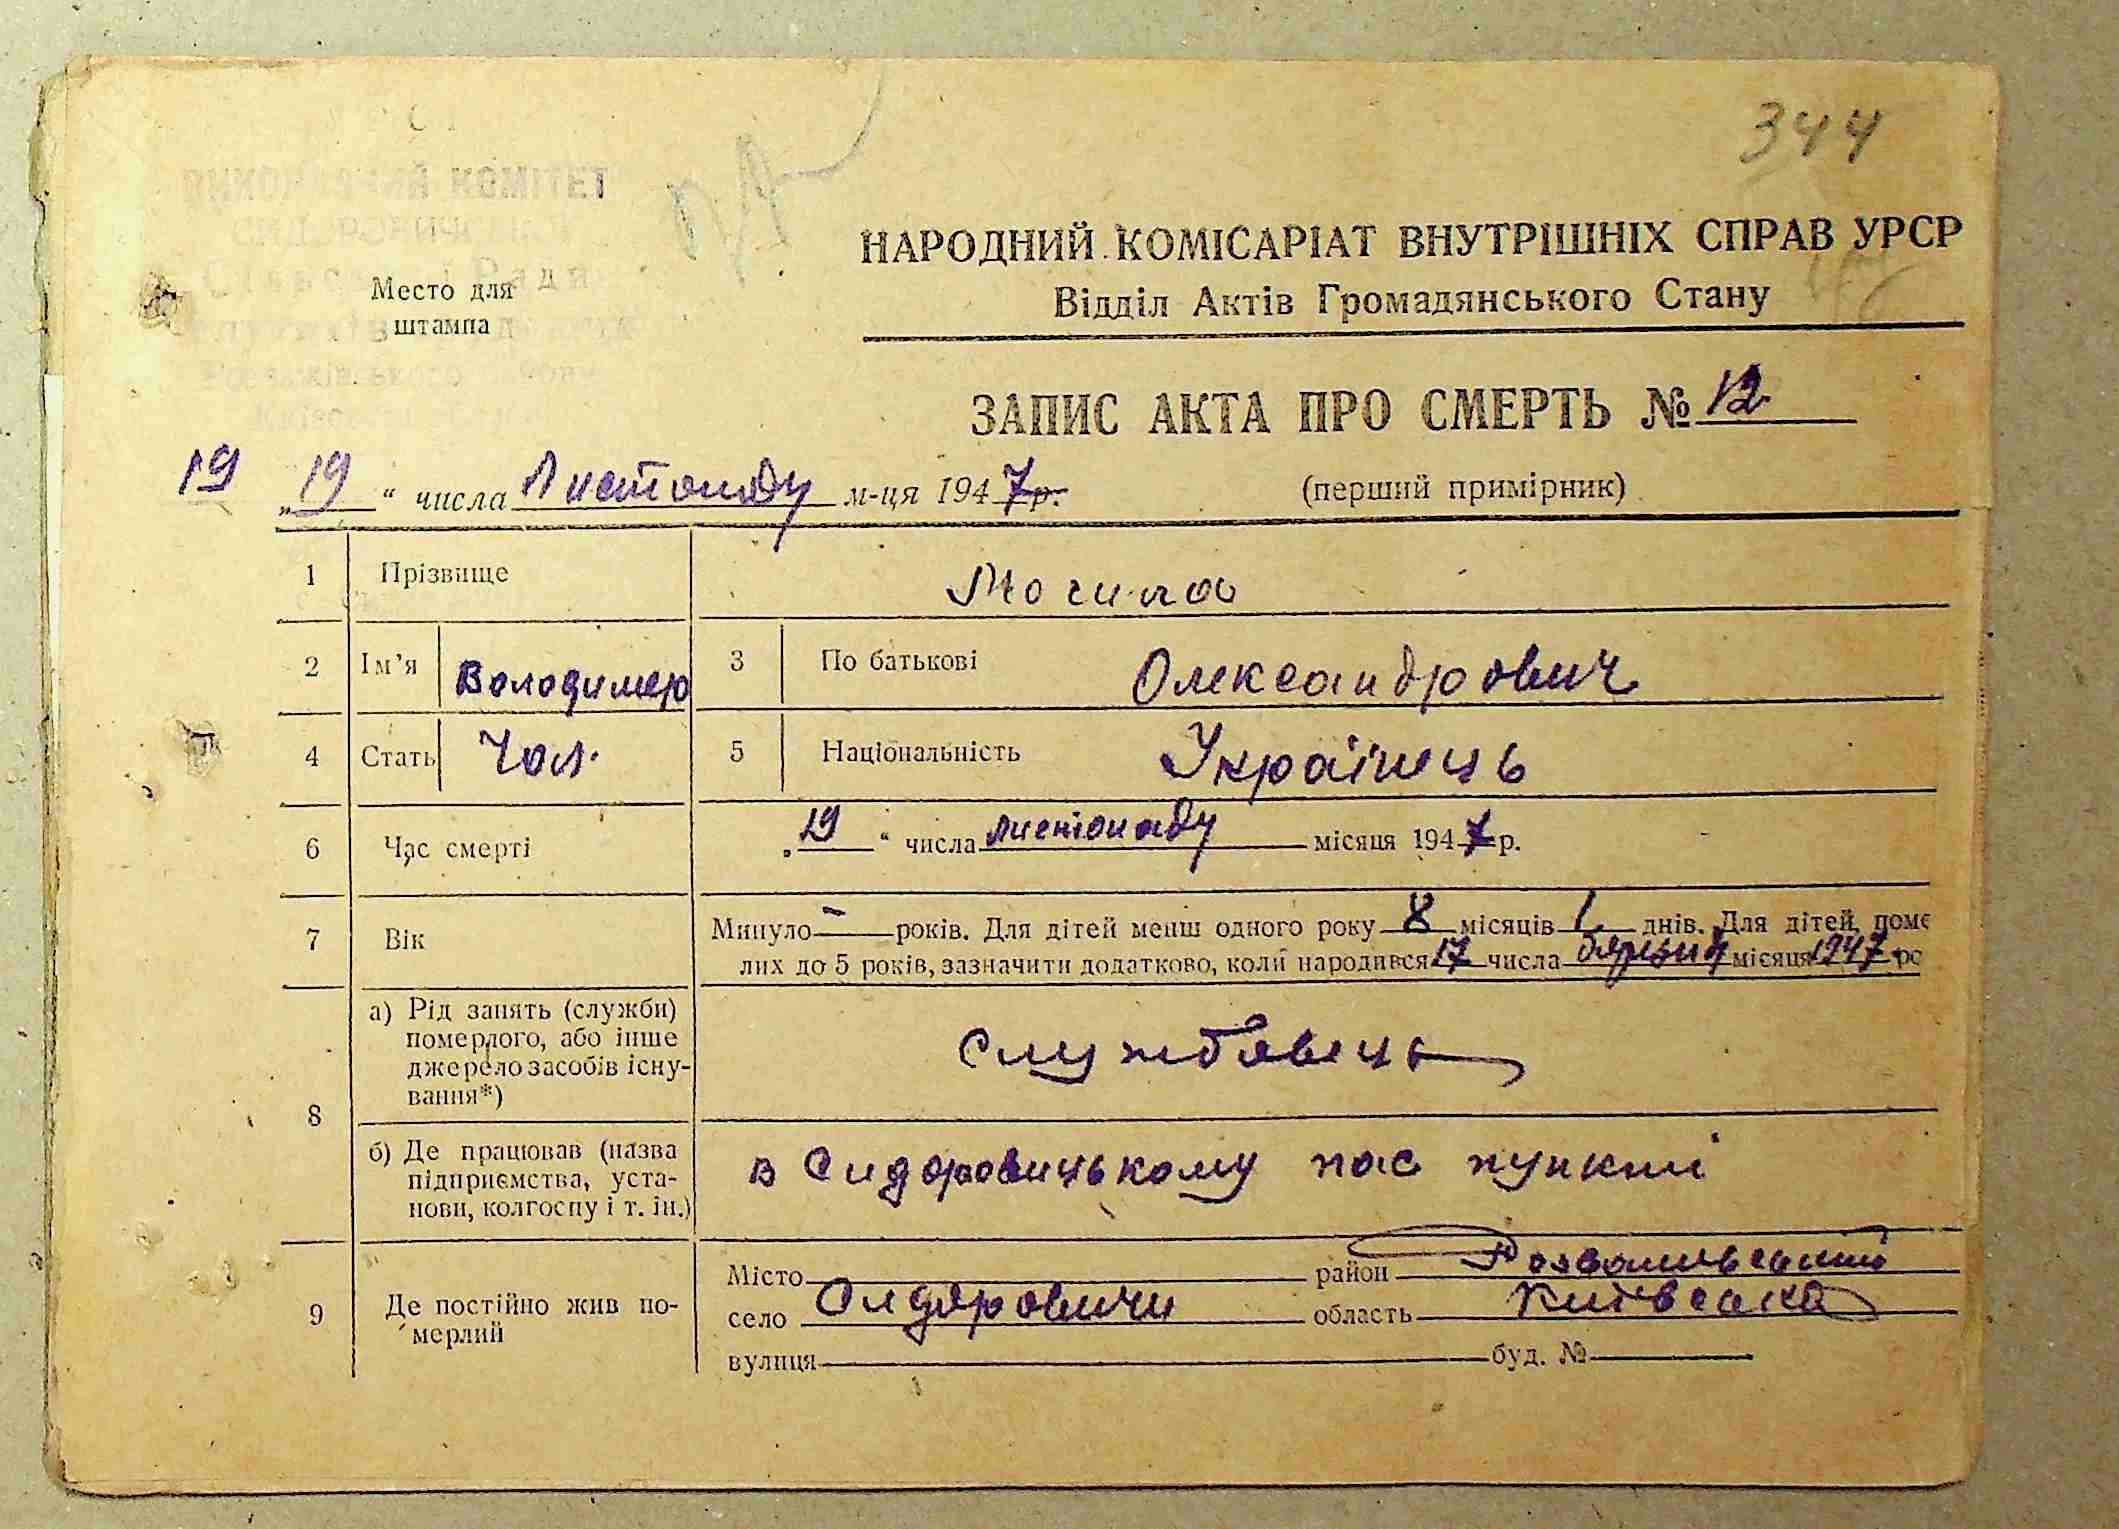 344
КОМІТЕТ
НАРОДНИЙ КОМІСАРІАТ ВНУТРІШНІХ СПРАВ УРСР
Відділ Актів Громадянського Стану
Место для
штампа
ЗАПИС АКТА ПРО СМЕРТЬ № 12
19 „19“ числа Листопаду м-ця 1947 р. (перший примірник)
1 Прізвище Могила
2 Ім’я Володимер 3 По батькові Олександрович
4 Стать Чол. 5 Національність Українець
6 Час смерті „19“ числа листопаду місяця 1947 р.
7 Вік Минуло — років. Для дітей менш одного року 8 місяців 2 днів. Для дітей, поме
лих до 5 років, зазначити додатково, коли народився 17 числа місяця 1947 ро
8 а) Рід занять (служби)
померлого, або інше
джерело засобів існу-
вання*)
Службовець
б) Де працював (назва
підприємства, уста-
нови, колгоспу і т. ін.)
в Сидоровицькому пункті
9 Де постійно жив по-
мерлий
Місто район Розважівський
село Сидоровичи область Київська
вулиця буд. №